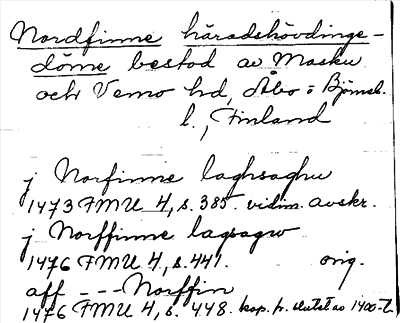 Nordfinne häradshövdinge-
döme bestod av Masku
och Vemo hd, Åbo = Björneb.
l., Finland
j Norfinne laghsaghu
1473 FMU 4, s. 385. vidim. avskr.
j Norffinne lagsagw
1476 FMU 4, s. 441. orig.
aff --- Norffin
1476 FMU 4, s. 448. kop. fr. slutet av 1400-t.